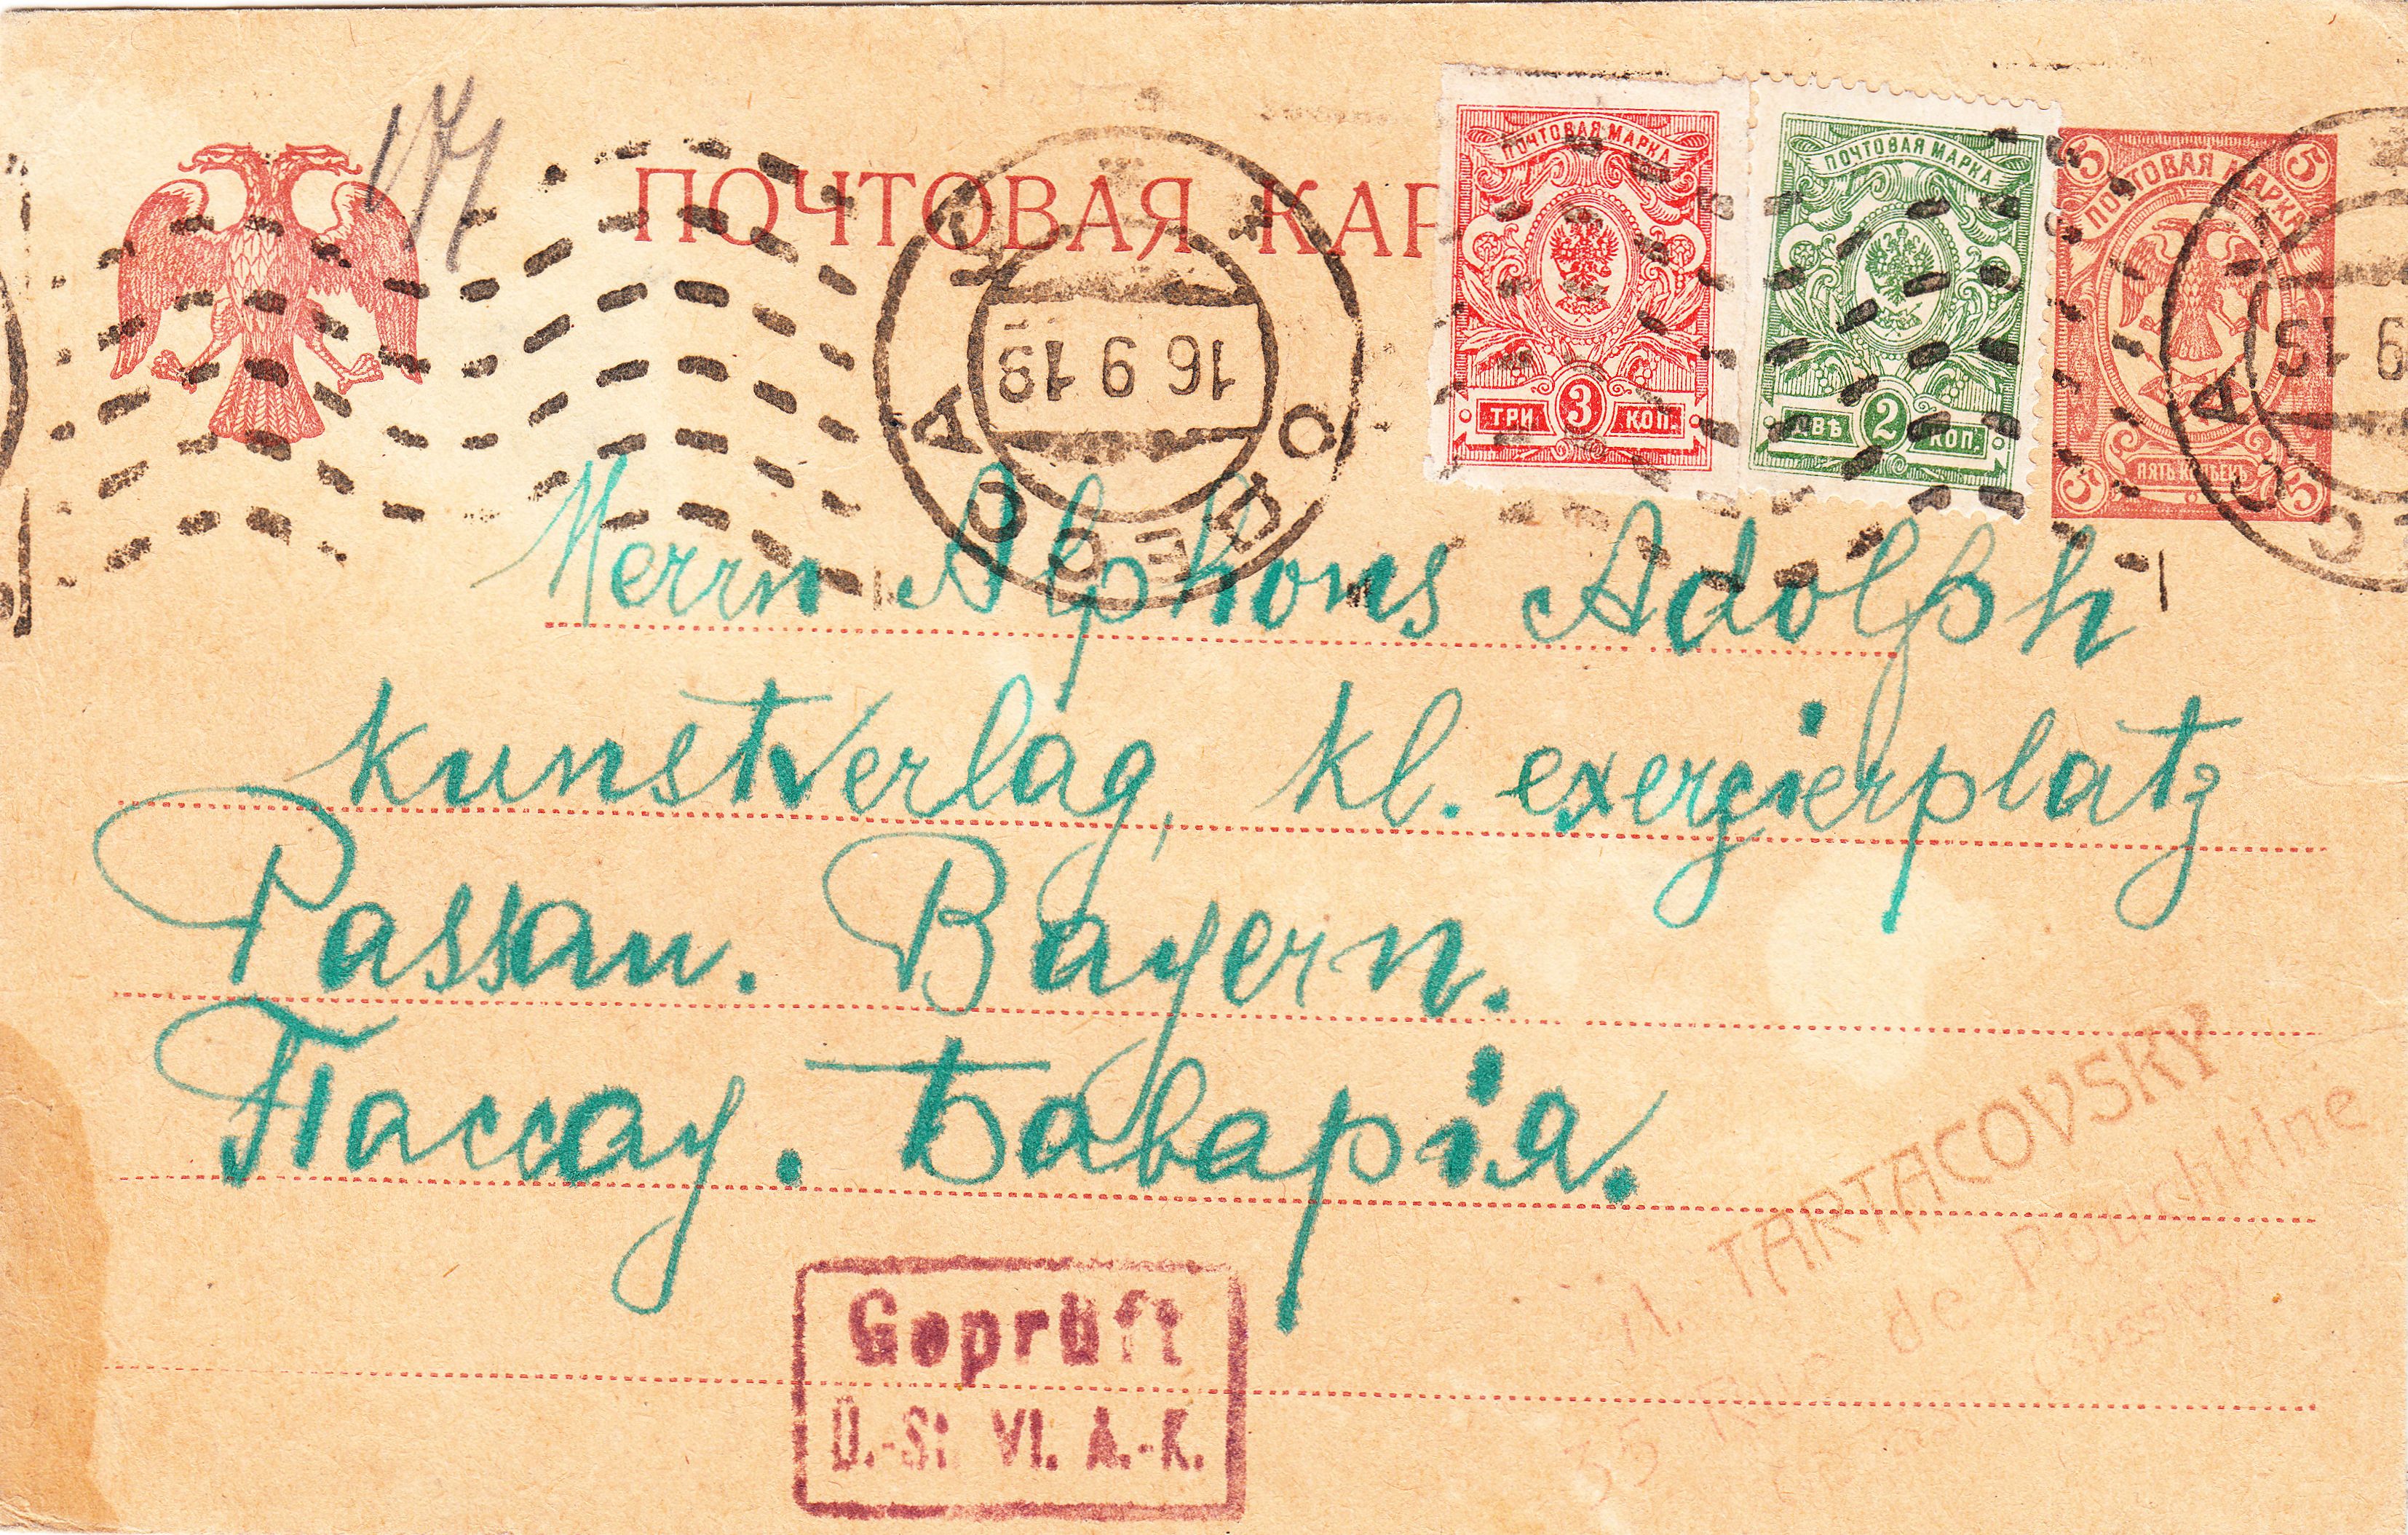 171
ПОЧТОВАЯ КАР
ПОЧТОВАЯ МАРКА
ТРИ 3 КОП.
ПОЧТОВАЯ МАРКА
ДВѢ 2 КОП.
5 5
ПОЧТОВАЯ МАРКА
ПЯТЬ КОПѢЕКЪ
5 5
ОДЕССА
16 9 18
Herrn Alphons Adolph
Kunstverlag, kl. exerzierplatz
Passau. Bayern.
Пассау. Баварія.
TARTACOVSKY
35 Rue de Pouchkine
Geprüft
Ü.-St. VI. A.-K.